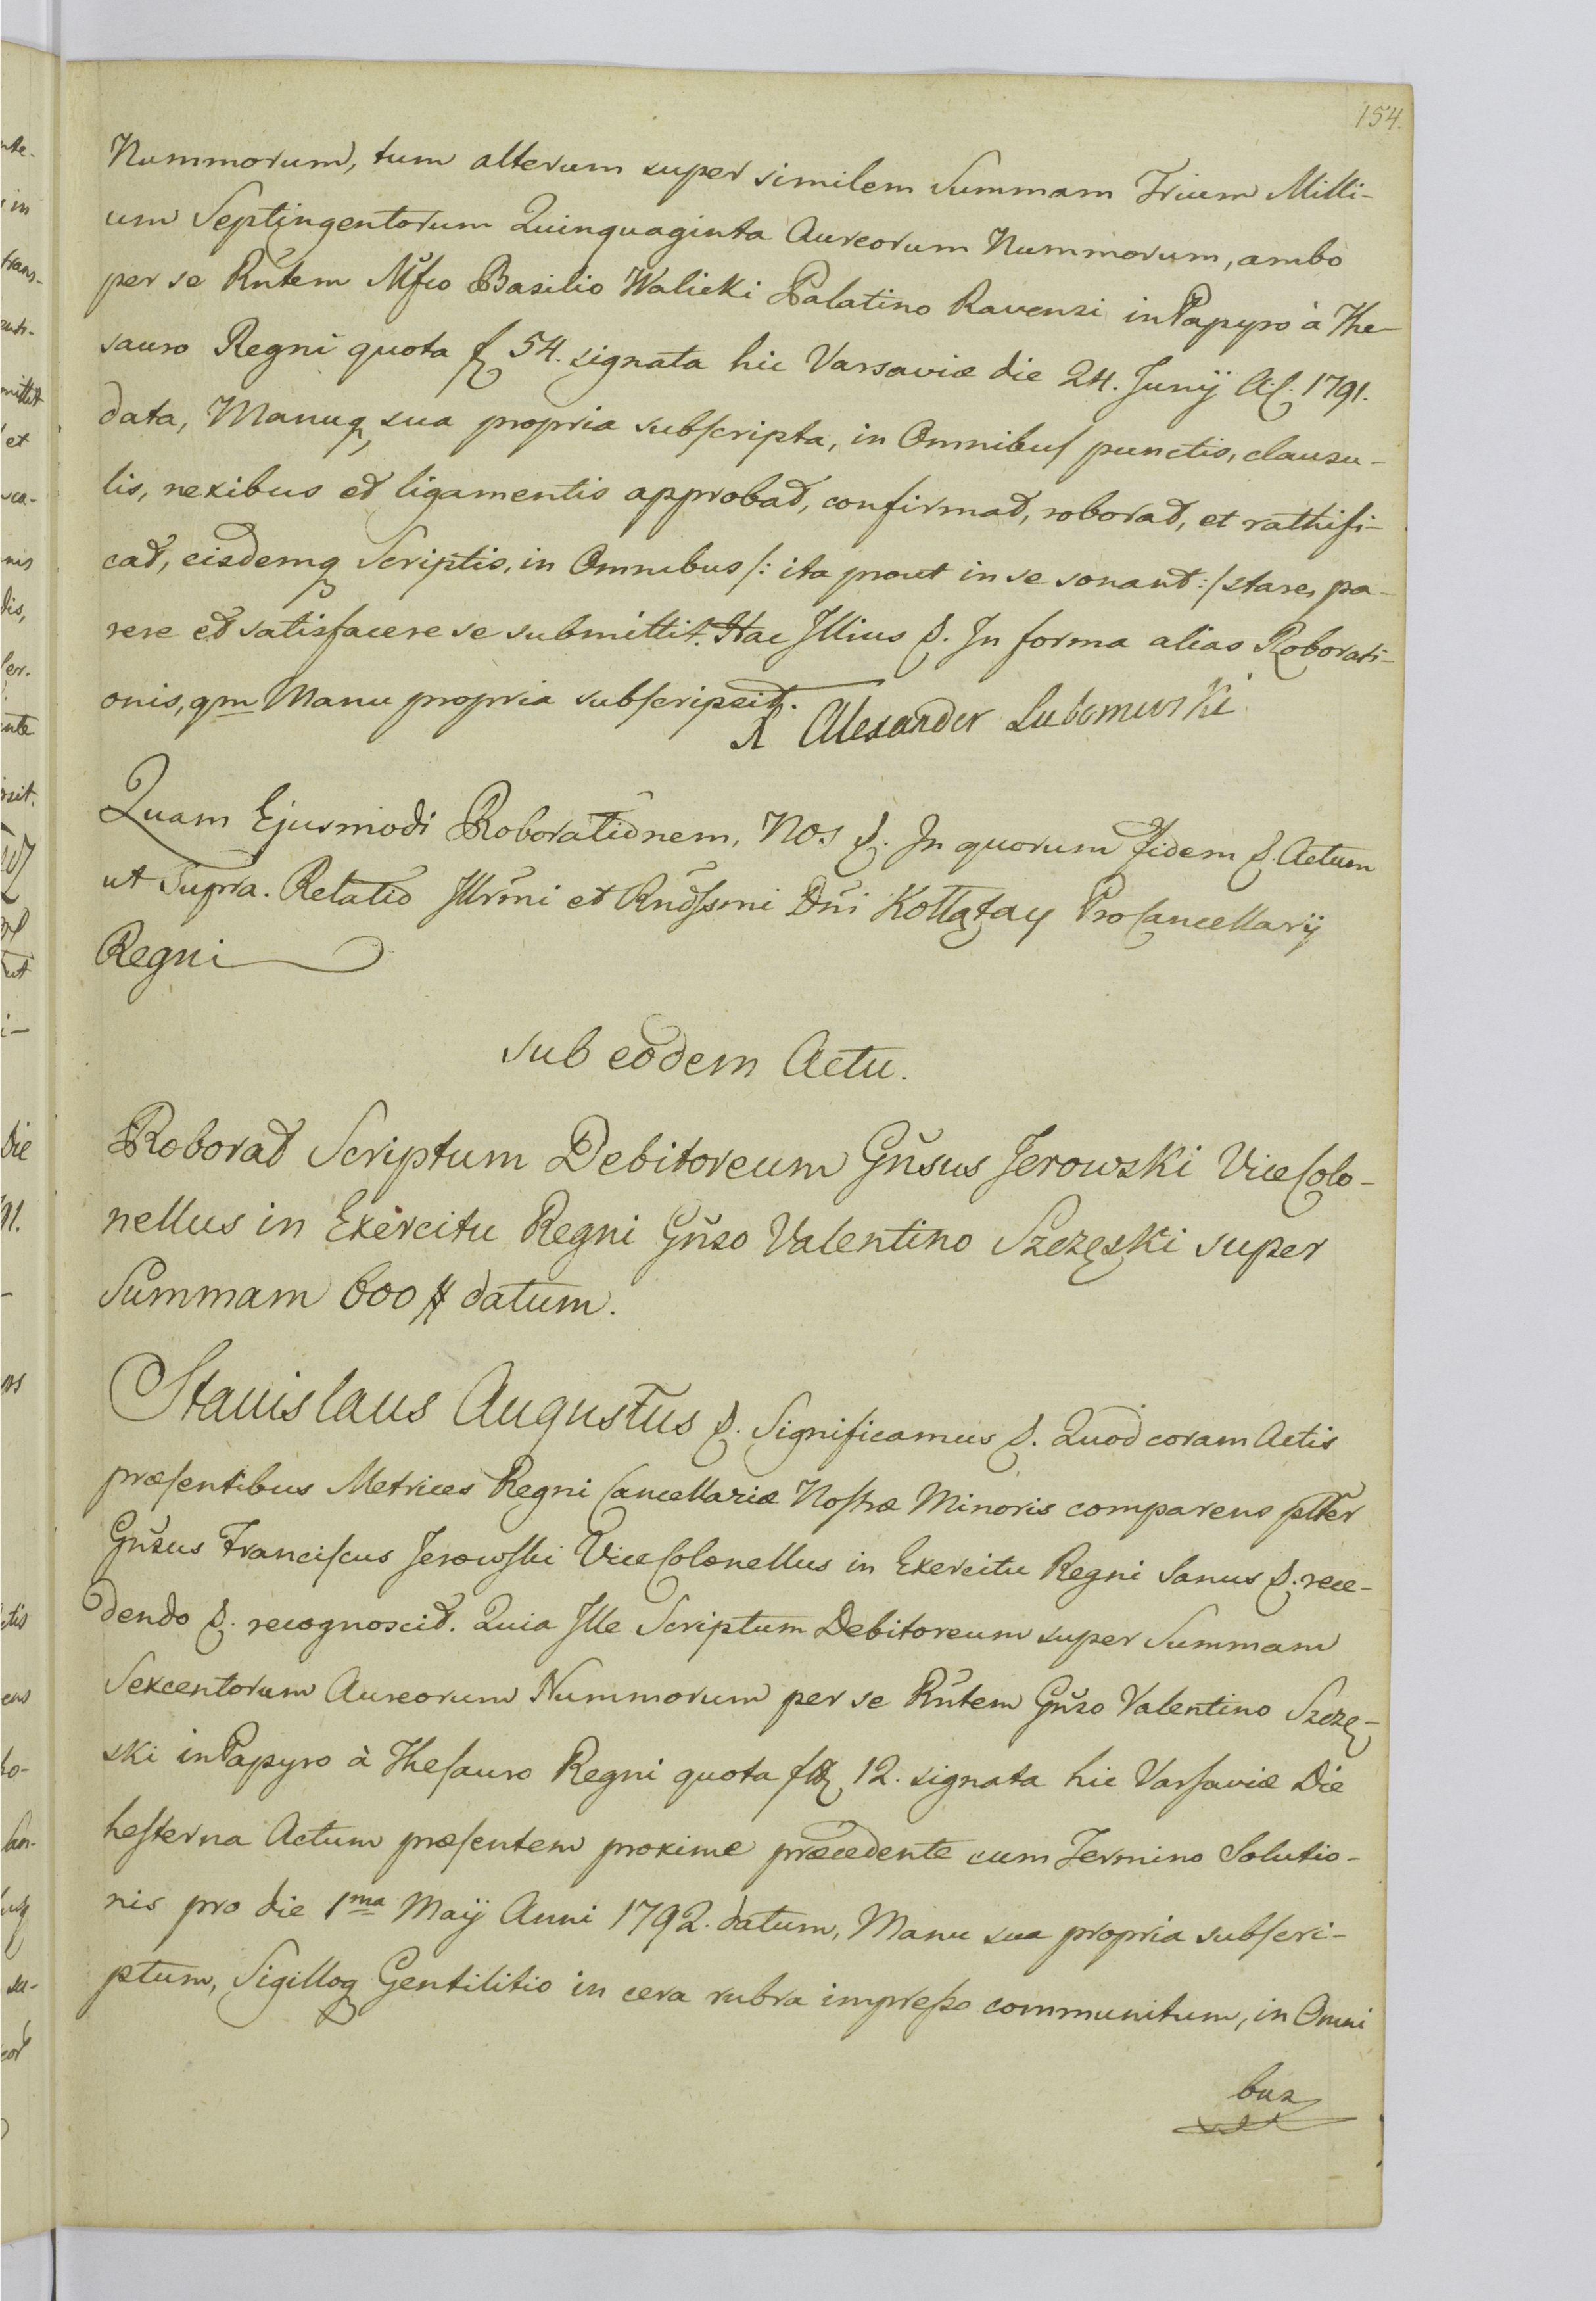 154.
Nummorum, tum alterum super similem Summam Trium Milli-
um Septingentorum Quinquaginta Aureorum Nummorum, ambo
per se Rńtem Mfco Basilio Walicki Palatino Ravensi in Papyro à The-
sauro Regni quota f 54. signata hic Varsaviæ die 24. Junÿ A.C. 1791.
data, Manuq sua propria subscripta, in Omnibus punctis, clausu-
lis, nexibus et ligamentis approbat, confirmat, roborat, et rathifi-
cat, eisdemq Scriptis, in Omnibus /: ita prout in se sonant :/ stare, pa-
rere et satisfacere se submittit. Hac Illius &. In forma alias Roborati-
onis, qm Manu propria subscripsit.
X Alexander Lubomirski
Quam Ejusmodi Roborationem, Nos &. In quorum Fidem &. Actum
ut Supra. Relatio Illrmi et Rndssmi Dńi Kołłątay ProCancellarÿ
Regni
sub eodem Actu.
Roborat Scriptum Debitoreum Gńsus Jerowski ViceColo-
nellus in Exercitu Regni Gńso Valentino Szczęski super
Summam 600 # datum.
Stanislaus Augustus &. Significamus &. Quod coram Actis
præsentibus Metrices Regni Cancellariæ Nostræ Minoris comparens pltter
Gńsus Franciscus Jerowski ViceColonellus in Exercitu Regni Sanus &. rece-
dendo &. recognoscit. Quia Ille Scriptum Debitoreum super Summam
Sexcentorum Aureorum Nummorum per se Rńtem Gńso Valentino Szczę-
ski in Papyro à Thesauro Regni quota 12. signata hic Varsaviæ Die
hesterna Actum præsentem proxime præcedente cum Termino Solutio-
nis pro die 1ma Maÿ Anni 1792. datum, Manu sua propria subscri-
ptum, Sigilloq Gentilitio in cera rubra impresso communitum, in Omni
bus